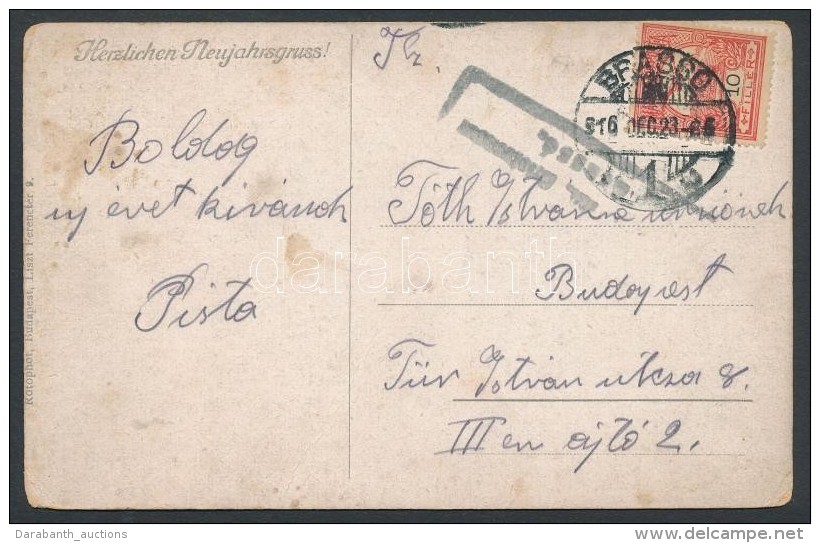 Herzlichen Neujahrsgruss!
Boldog
uj évet kivánok
Pista
Rotophot, Budapest, Liszt Ferencter 9.
10
FILLÉR
BRASSÓ
916 DEC. 23
1
Tóth Istvánné
Budapest
István utcza 8.
III em ajtó 2.
darabanth
Darabanth_auctions
www.delcampe.net